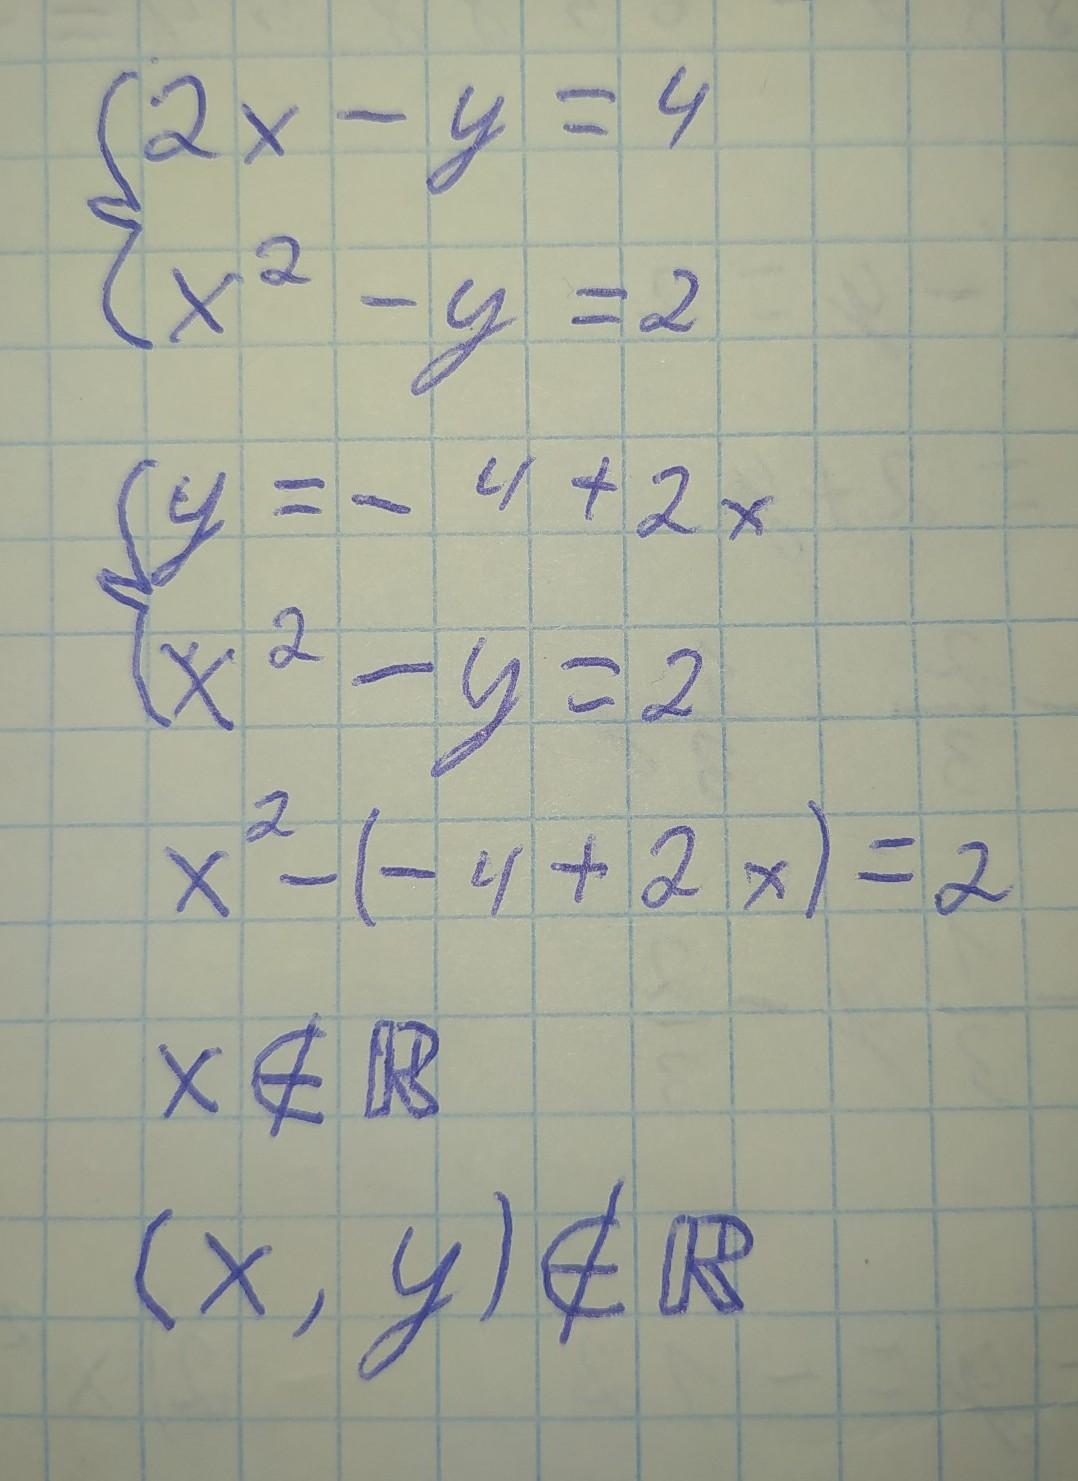 {2x - y = 4
{x² - y = 2
{y = - 4 + 2x
{x² - y = 2
x² - (- 4 + 2x) = 2
x ∉ ℝ
(x, y) ∉ ℝ